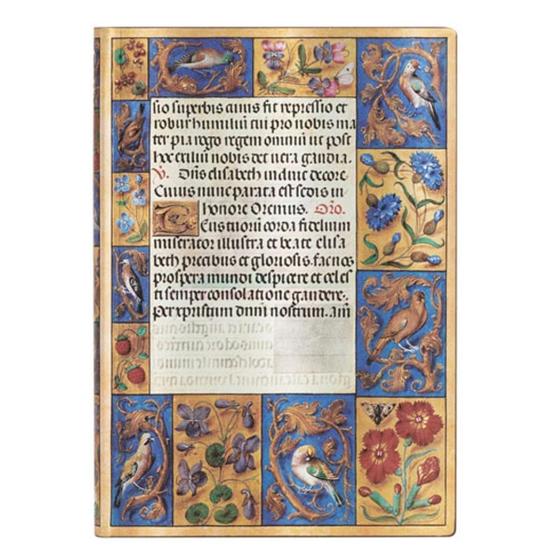 sio superbis cuius fit repressio et
robur humiliũ cui pro nobis ma
ter pia rogo regem omniũ ut post
hoc exiliũ nobis det uera gaudia.
V. Dñs elisabeth induit decore
Cuius nunc parata est sedis in
honore Oremus. Oro.
Eus tuorũ corda fidelium
miserator illustra et beate elisa
beth precibus et gloriosis. fac nos
prospera mundi despicere et celes
ti semper consolatione gaudere.
Per xpristum dnm̃ nostrum. am̃